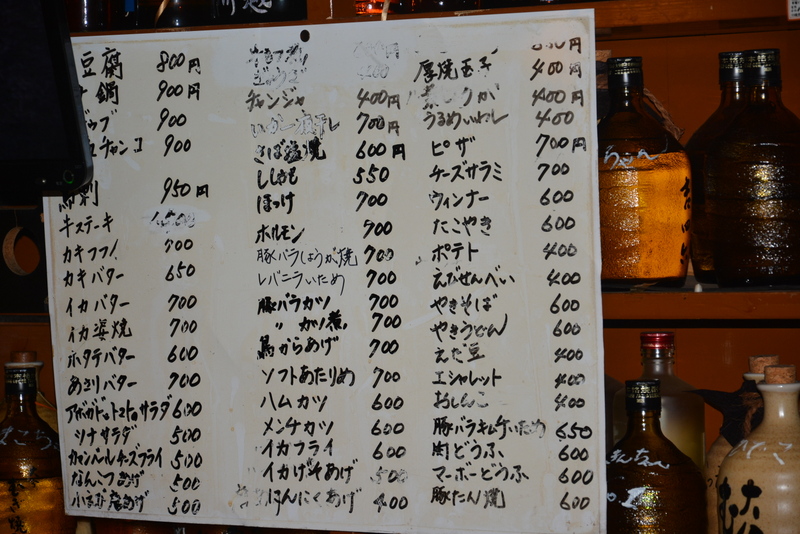 豆腐 800円
鍋 900円
900
チャンコ 900
刺 950円
牛ステーキ
カキフライ 700
カキバター 650
イカバター 700
イカ姿焼 700
ホタテバター 600
あさりバター 700
アボガドトマトサラダ 600
ツナサラダ 500
カマンベールチーズフライ 500
なんこつあげ 500
500
チャンジャ 400円
700円
さば塩焼 600円
ししゃも 550
ほっけ 700
ホルモン 700
豚バラしょうが焼 700
レバニラいため 700
豚バラカツ 700
〃 ガツ煮 700
鳥からあげ 700
ソフトあたりめ 700
ハムカツ 600
メンチカツ 600
イカフライ 600
イカげそあげ 500
にんにくあげ 400
厚焼玉子 400円
400円
うるめいわし 400
ピザ 700円
チーズサラミ 700
ウィンナー 600
たこやき 600
ポテト 400
えびせんべい 400
やきそば 600
やきうどん 600
えだ豆 400
エシャレット 400
おしんこ 400
豚バラキムチいため 650
肉どうふ 600
マーボーどうふ 600
豚たん焼 600